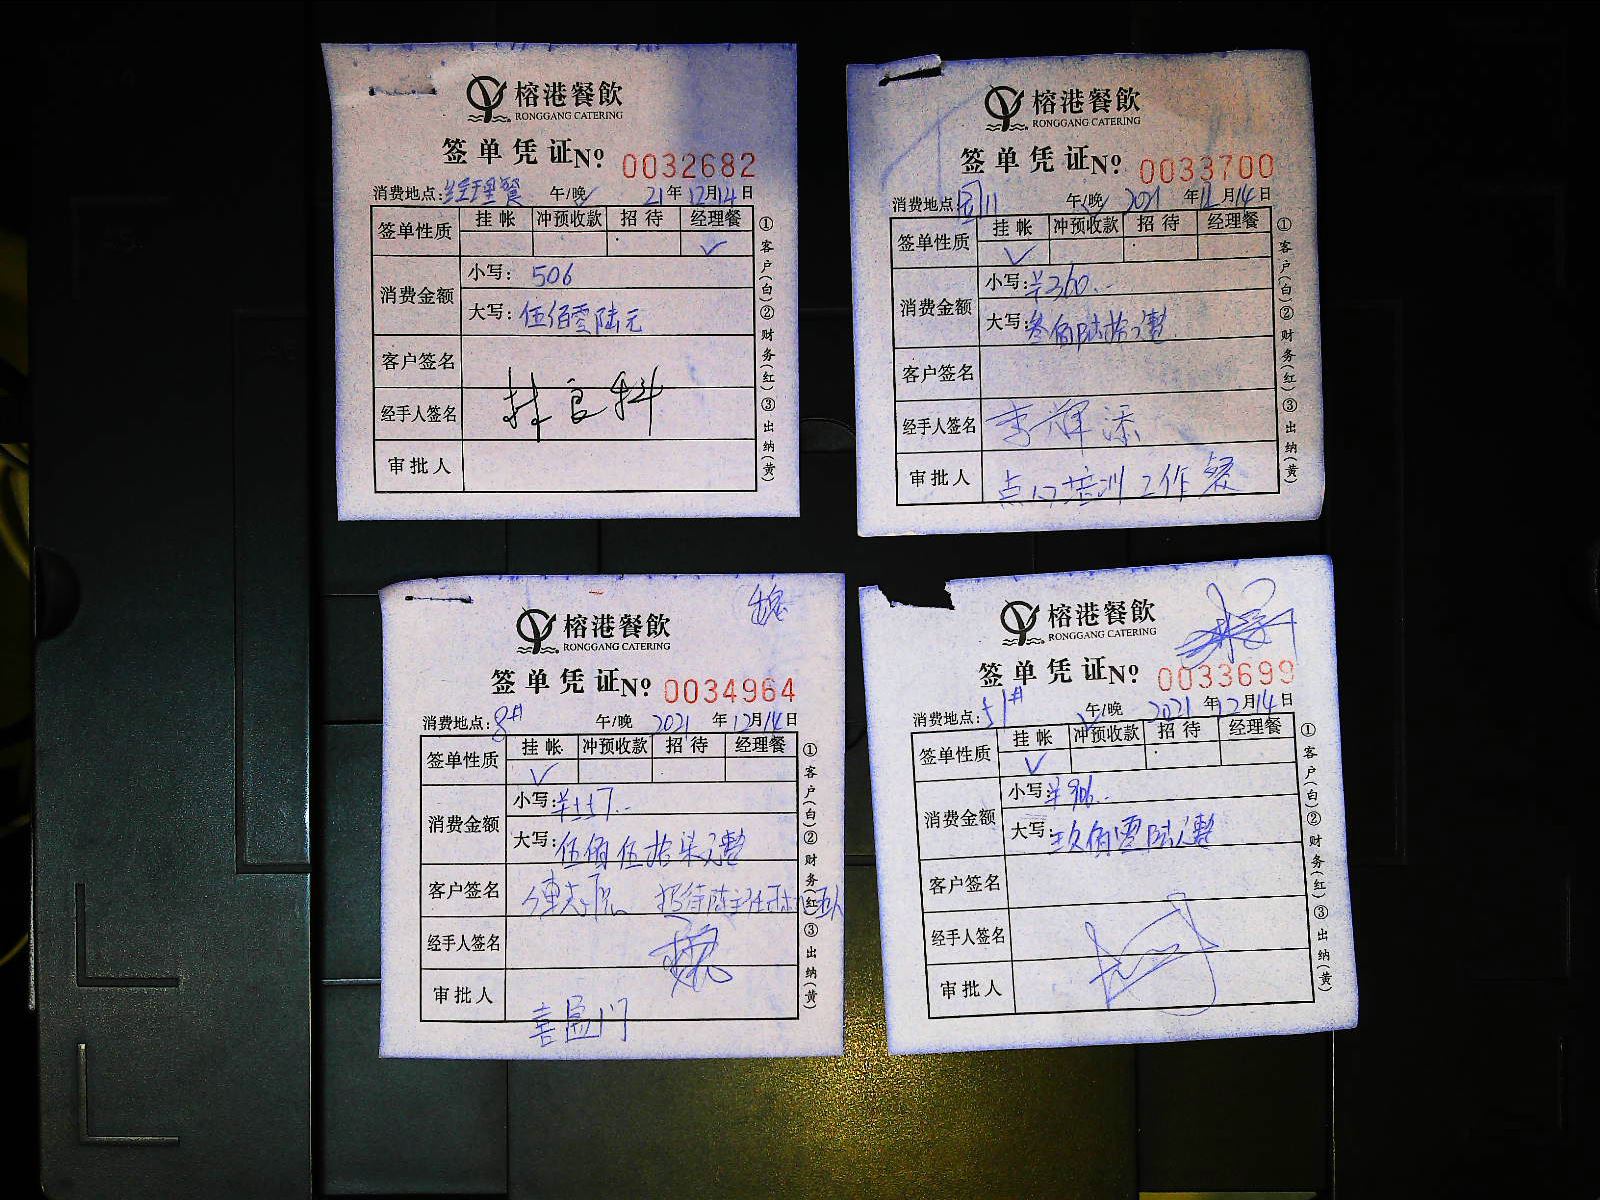 榕港餐飲
RONGGANG CATERING
签单凭证Nº 0032682
消费地点:经理餐 午/晚 21年12月14日
签单性质 挂帐 冲预收款 招待 经理餐
✓
消费金额 小写: 506
大写: 伍佰零陆元
客户签名
经手人签名 林良科
审批人
①客户(白)②财务(红)③出纳(黄)
榕港餐飲
RONGGANG CATERING
签单凭证Nº 0033700
消费地点: 午/晚 2021年12月14日
签单性质 挂帐 冲预收款 招待 经理餐
✓
消费金额 小写:¥360.-
大写:叁佰陆拾元整
客户签名
经手人签名 李辉添
审批人 点心培训工作餐
①客户(白)②财务(红)③出纳(黄)
魏
榕港餐飲
RONGGANG CATERING
签单凭证Nº 0034964
消费地点:8# 午/晚 2021年12月14日
签单性质 挂帐 冲预收款 招待 经理餐
✓
消费金额 小写:¥557.-
大写:伍佰伍拾柒元整
客户签名 招待陈主任
经手人签名 魏
审批人
喜盈门
①客户(白)②财务(红)③出纳(黄)
榕港餐飲
RONGGANG CATERING
签单凭证Nº 0033699
消费地点:51# 午/晚 2021年12月14日
签单性质 挂帐 冲预收款 招待 经理餐
✓
消费金额 小写:¥906.-
大写:玖佰零陆元整
客户签名
经手人签名
审批人
①客户(白)②财务(红)③出纳(黄)